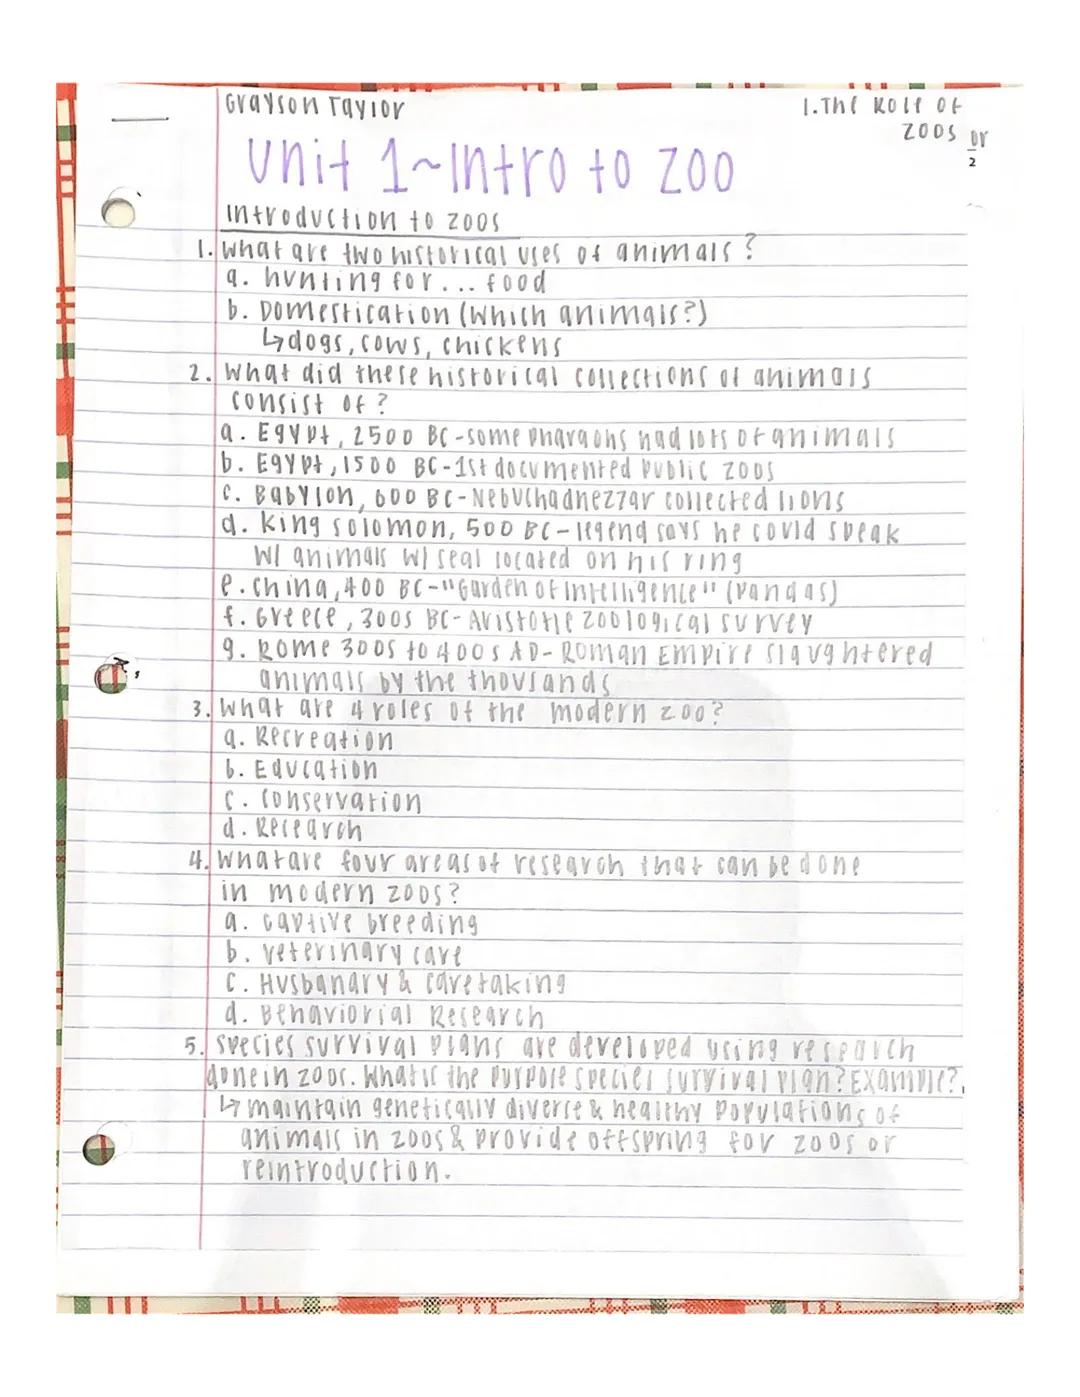 Grayson Taylor
1. The Role of
Zoos
or
2
Unit 1~Intro to Zoo
Introduction to zoos
1. What are two historical uses of animals?
a. hunting for... food
b. Domestication (Which animals?)
↳dogs, cows, chickens
2. What did these historical collections of animals
consist of?
a. Egypt, 2500 BC-some pharaohs had lots of animals
b. Egypt, 1500 BC-1st documented public zoos
c. Babylon, 600 BC-Nebuchadnezzar collected lions
d. King Solomon, 500 BC-legend says he could speak
w/ animals w/ seal located on his ring
e. China, 400 BC-"Garden of Intelligence" (pandas)
f. Greece, 300s BC-Aristotle zoological survey
g. Rome 300s to 400s AD-Roman Empire slaughtered
animals by the thousands
3. What are 4 roles of the modern zoo?
a. Recreation
b. Education
c. Conservation
d. Research
4. What are four areas of research that can be done
in modern zoos?
a. captive breeding
b. veterinary care
c. Husbanary & caretaking
d. Behaviorial Research
5. Species survival plans are developed using research
done in zoos. What is the purpose species survival plan? Example?
↳ maintain genetically diverse & healthy populations of
animals in zoos & provide offspring for zoos or
reintroduction.